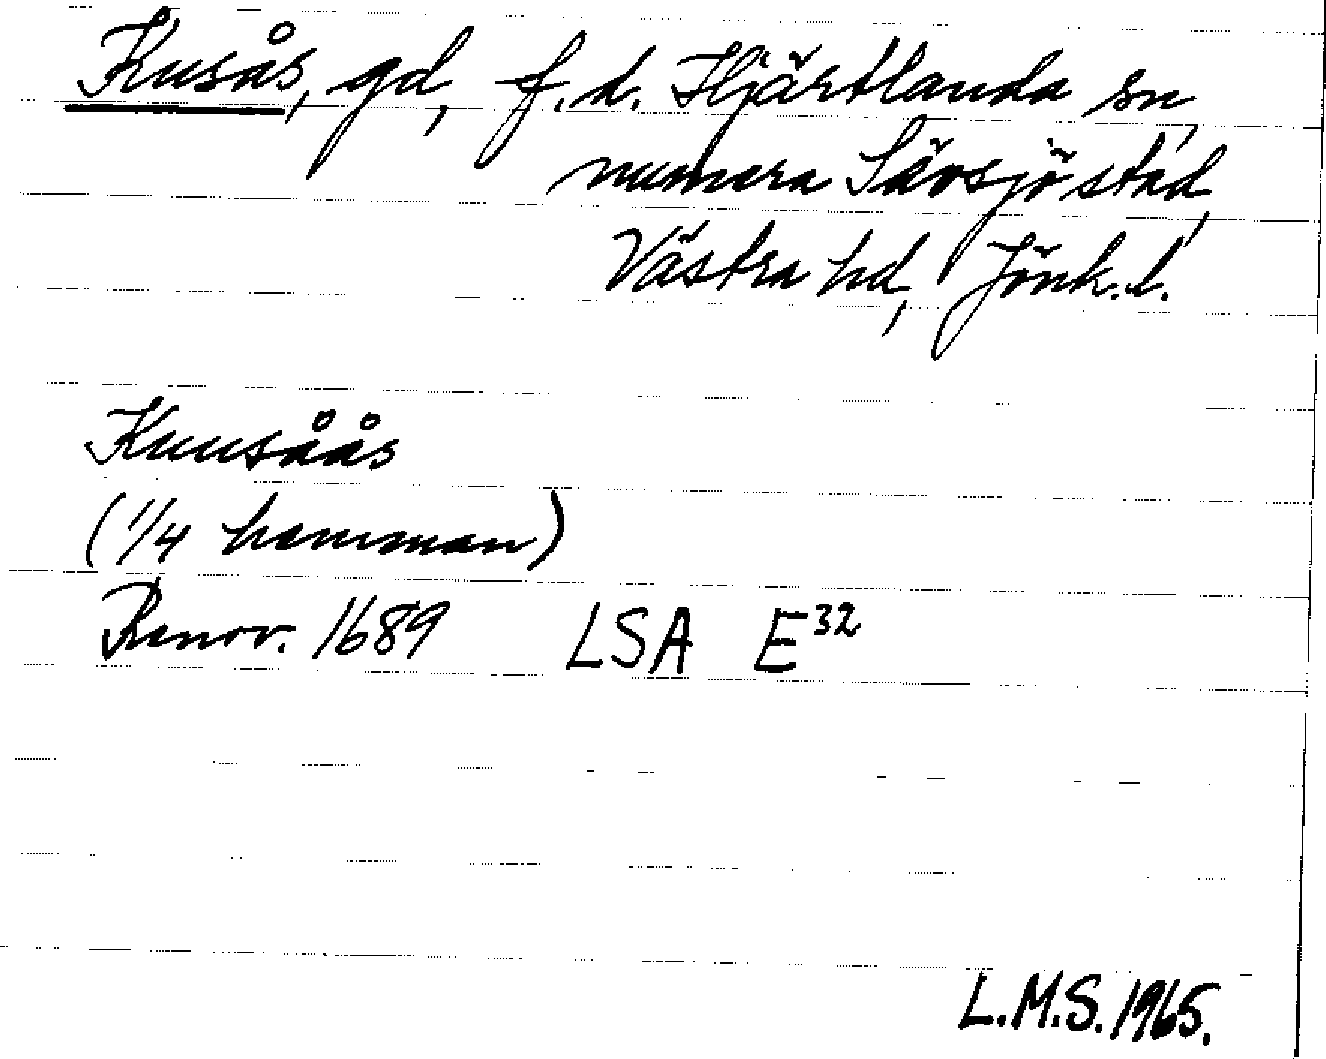 Kusås, gd, f.d. Hjärtlanda sn,
numera Sävsjö stad,
Västra hd, Jönk.l.
Kuusåås
(1/4 hemman)
Renov. 1689 LSA E32
L.M.S. 1965.